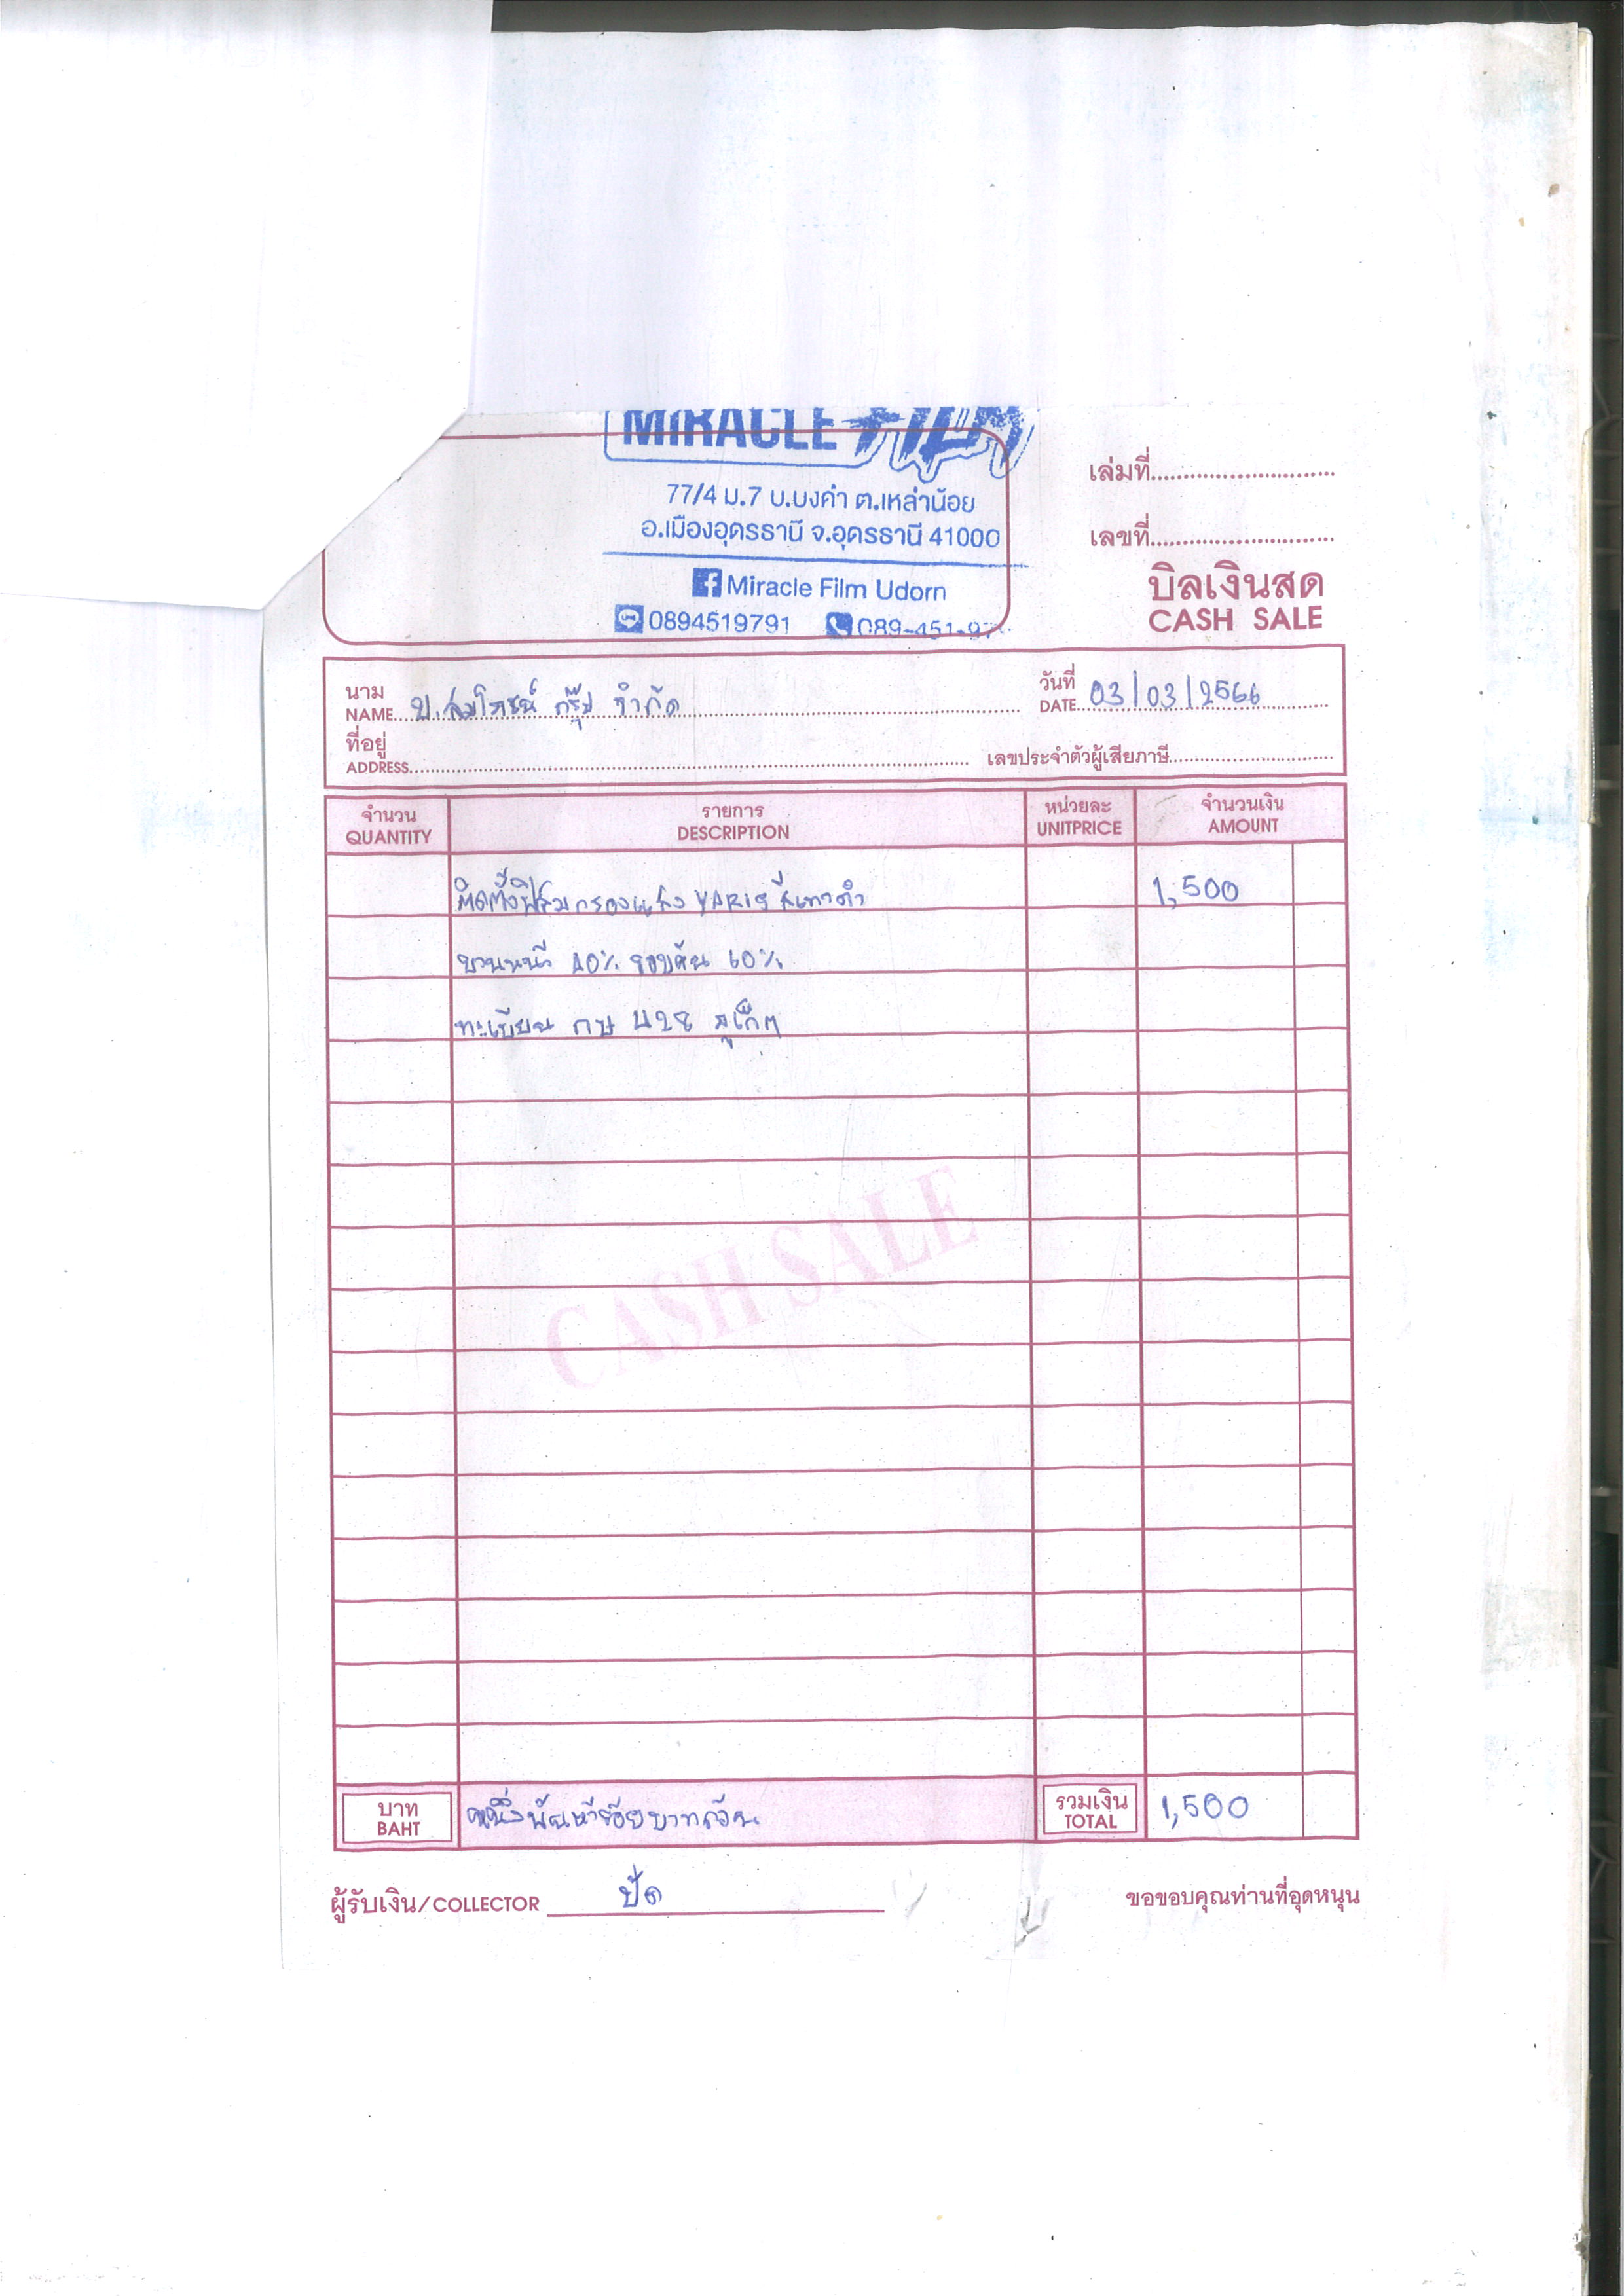 MIRACLE FILM
77/4 ม.7 บ.บงคำ ต.เหล่าน้อย
อ.เมืองอุดรธานี จ.อุดรธานี 41000
Miracle Film Udorn
0894519791 089-451-97
เล่มที่
เลขที่
บิลเงินสด
CASH SALE
นาม
NAME บ.สมโภชน์ กรุ๊ป จำกัด
วันที่
DATE 03/03/2566
ที่อยู่
ADDRESS
เลขประจำตัวผู้เสียภาษี
จำนวน รายการ หน่วยละ จำนวนเงิน
QUANTITY DESCRIPTION UNITPRICE AMOUNT
ติดตั้งฟิล์มกรองแสง YARIS สีเทาดำ 1,500
บานหน้า 40% รอบคัน 60%
ทะเบียน กษ 428
CASH SALE
บาท
BAHT
หนึ่งพันห้าร้อยบาทถ้วน
รวมเงิน
TOTAL
1,500
ผู้รับเงิน/COLLECTOR
ขอขอบคุณท่านที่อุดหนุน